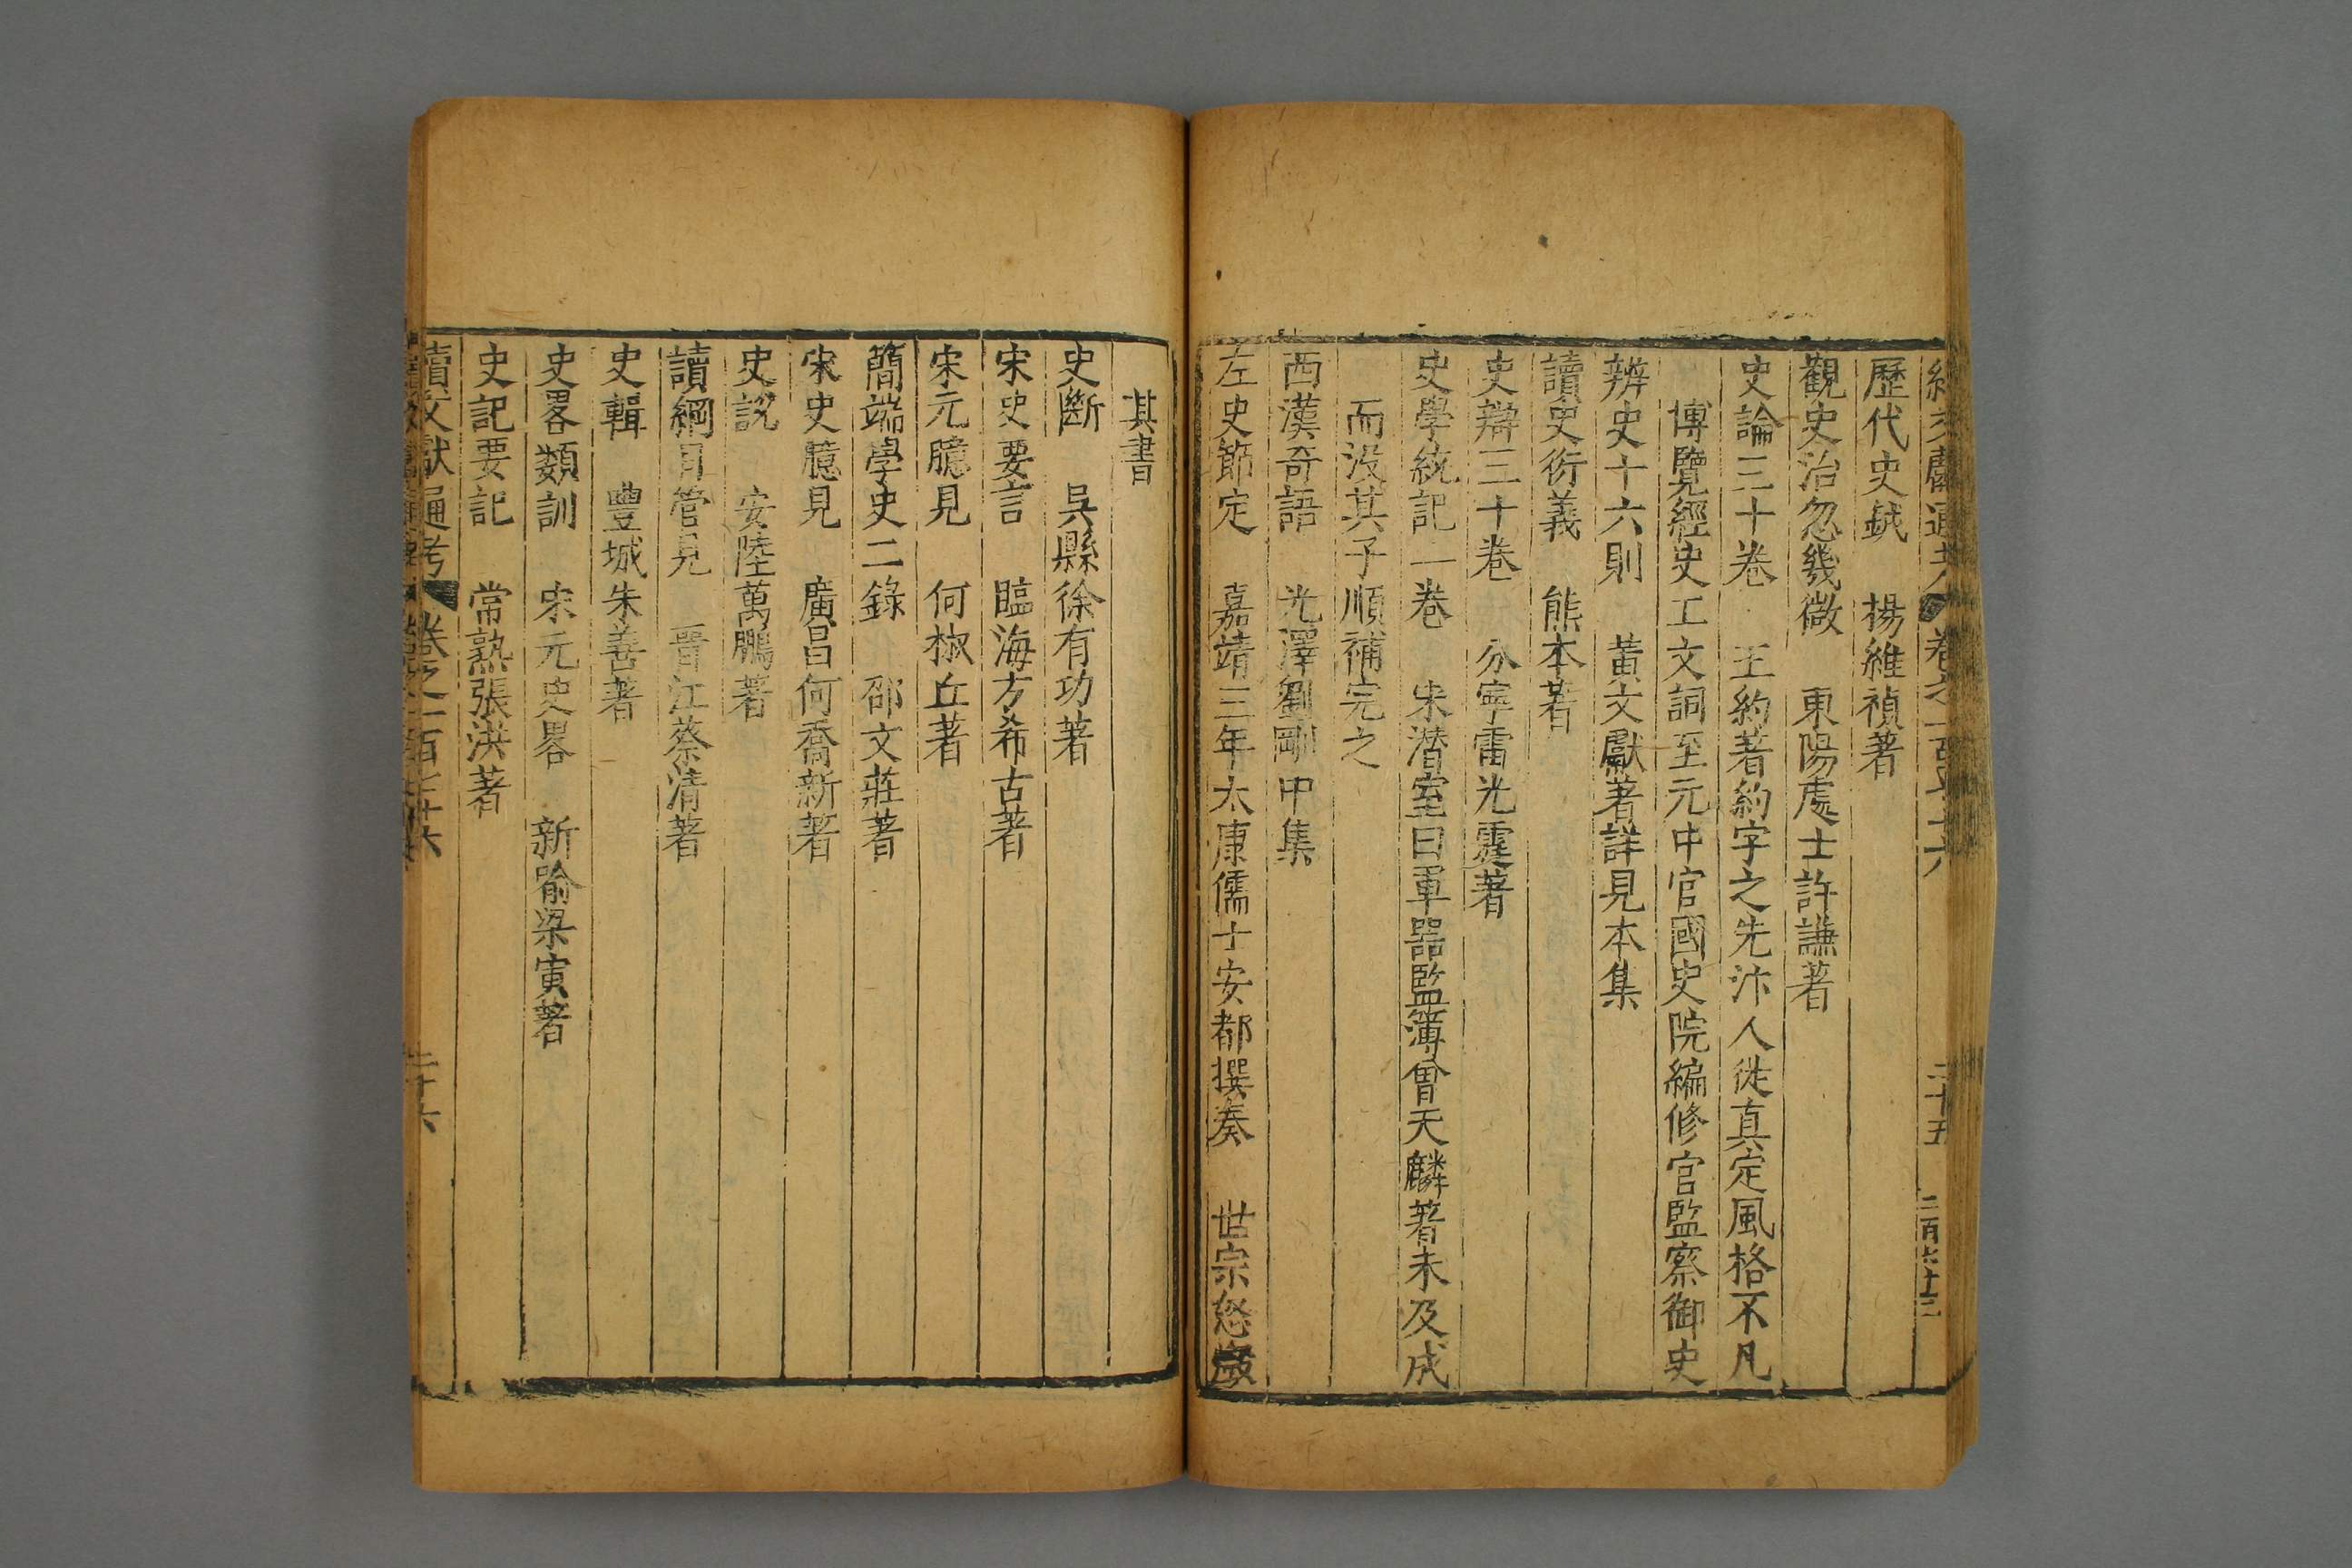 續文獻通考 卷之一百七十六 二十五 二百六十三
歷代史鉞 楊維禎著
觀史治忽幾微 東陽處士許謙著
史論三十卷 王約著約字之先汴人徙真定風格不凡
博覽經史工文詞至元中官國史院編修官監察御史
辨史十六則 黃文獻著詳見本集
讀史衍義 熊本著
史辯三十卷 分寧雷光霆著
史學統記一卷 朱潛室曰軍器監簿曾天麟著未及成
而沒其子順補完之
西漢奇語 光澤劉剛中集
左史節定 嘉靖三年太康儒士安都撰奏 世宗怒燬
其書
史斷 吳縣徐有功著
宋史要言 臨海方希古著
宋元臆見 何椒丘著
簡端學史二錄 邵文莊著
宋史臆見 廣昌何喬新著
史說 安陸萬鵬著
讀綱目管見 晉江蔡清著
史輯 豐城朱善著
史畧類訓 宋元史畧 新喻梁寅著
史記要記 常熟張洪著
續文獻通考 卷之一百七十六 二十六